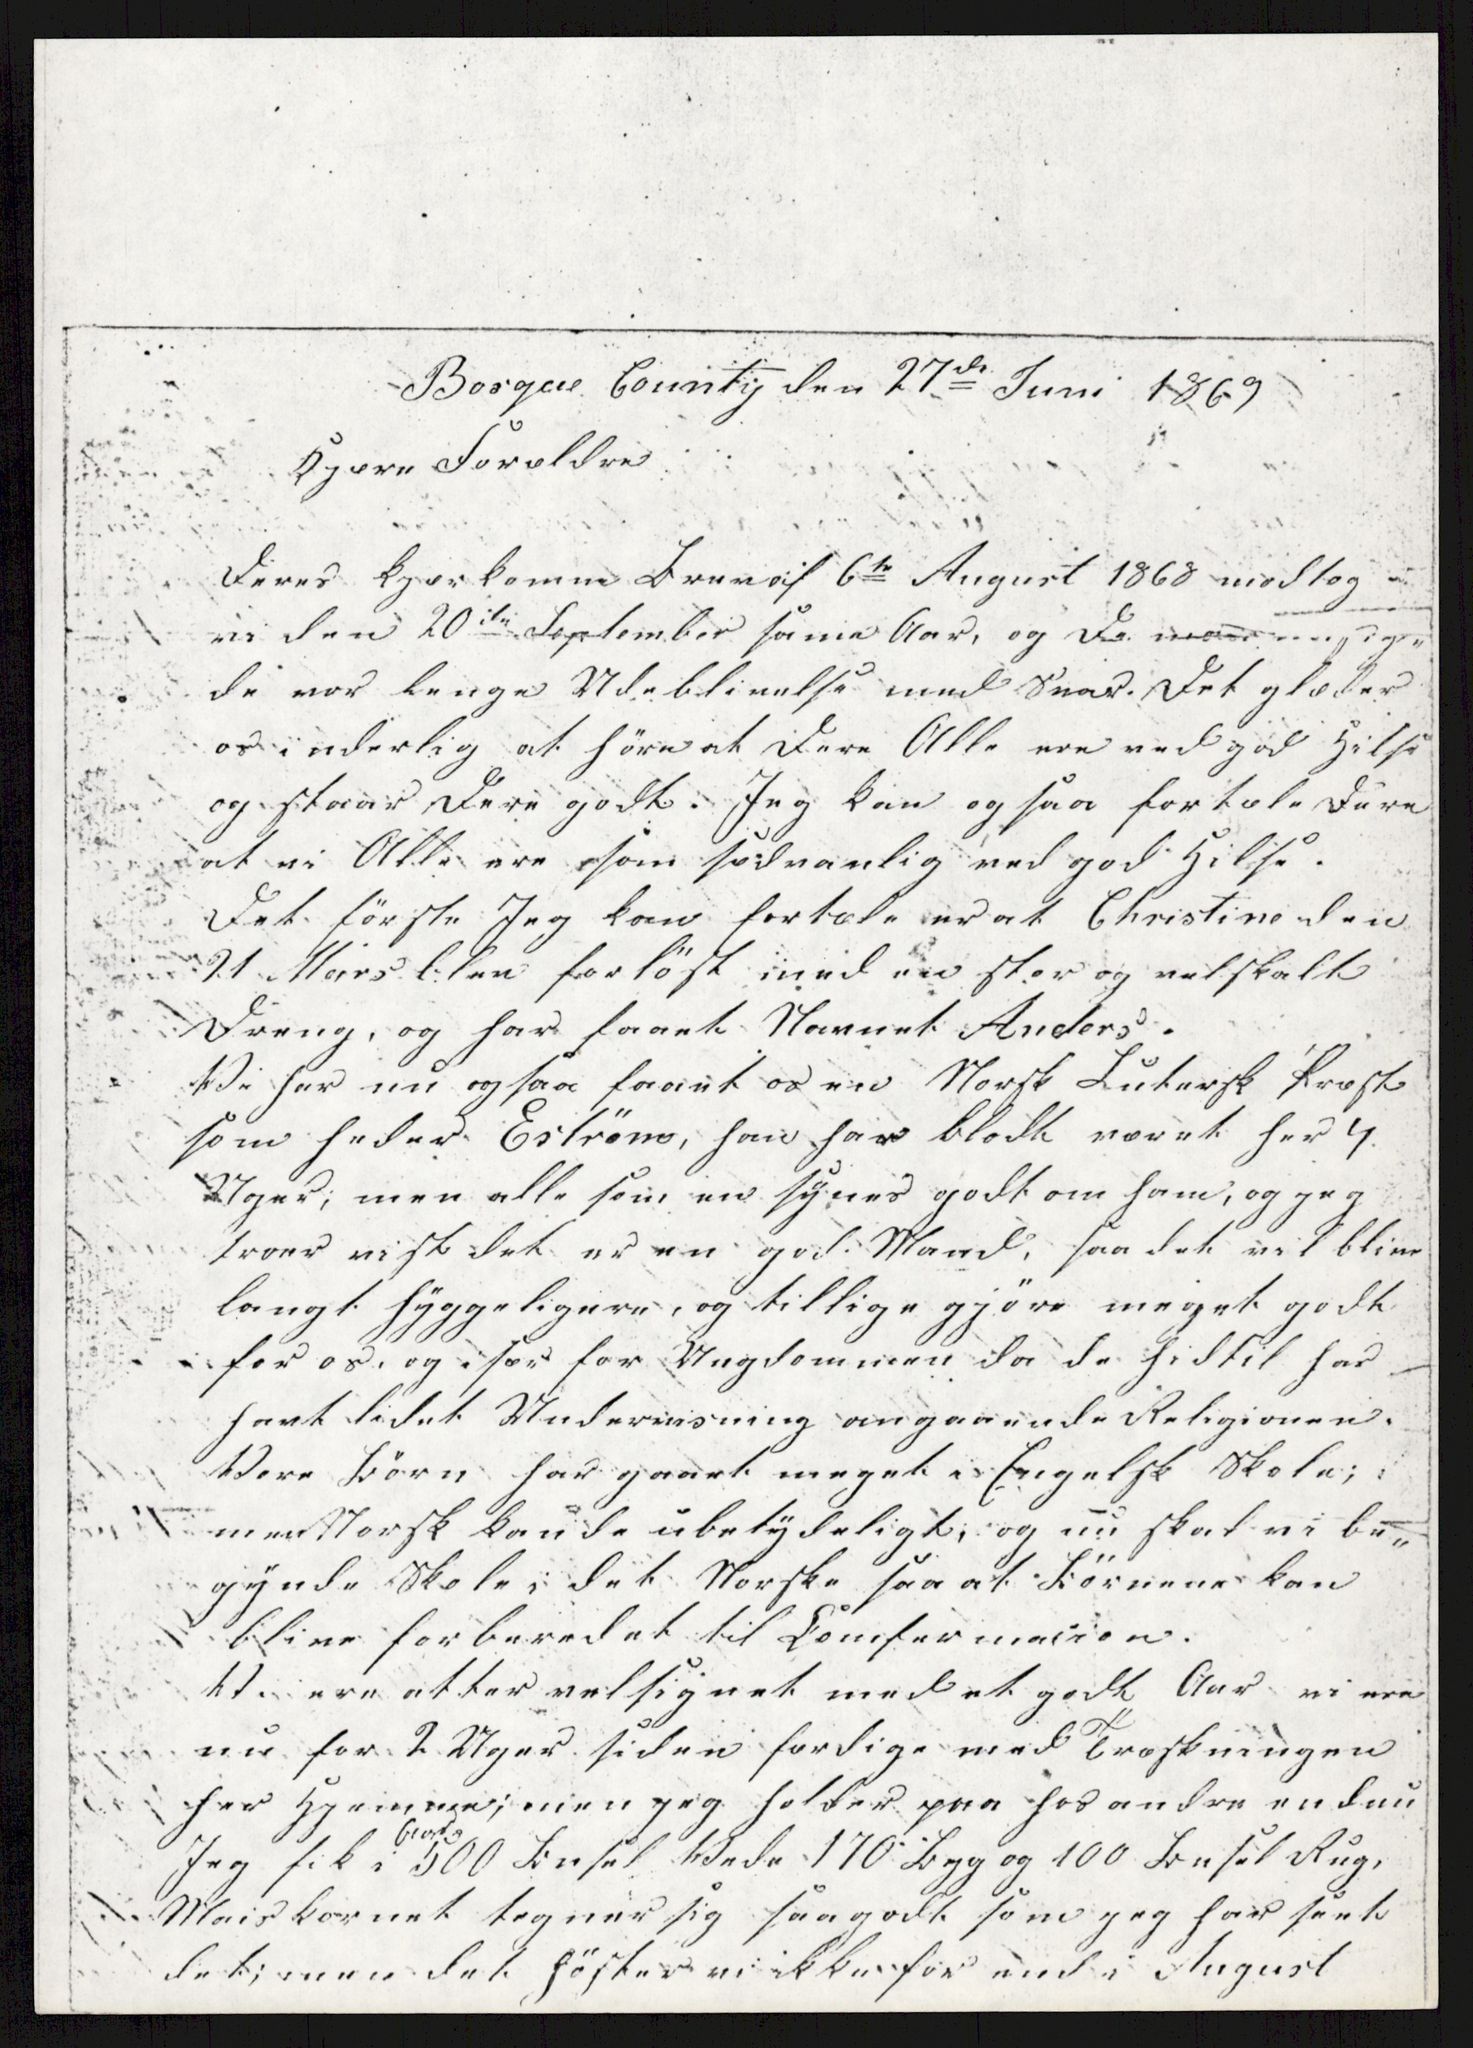 Bosque County den 27de Juni 1869
Kjære Foreldre
Deres kjærkomne Brev af 6te August 1868 modtog
vi den 20de September same Aar, og De maa undsige„
de vor lenge Udeblivelse med Svar. Det glæder
os inderlig at höre at Dere Alle ere ved god Hilse
og staar Dere godt. Jeg kan ogsaa fortæle Dere
at vi Alle ere som sedvanlig ved god Hilse.
Det förste Jeg kan fortæle er at Christine den
21 Mars blev forlöst med en stor og velskabt
Dreng, og har faaet Navnet Anders.
Vi har nu ogsaa faaet os en Norsk Lutersk Præst
som heder Eström, han har blodt været her 4
Uger; men alle som en synes godt om ham, og jeg
troer vist det er en god Mand, saa det vil blive
langt hyggeligere, og tillige gjöre meget godt
for os, og især for Ungdommen da de hidtil har
havt lidet Undervisning angaaende Religionen.
Vore Börn har gaaet meget i Engelsk Skole;
men Norsk kan de ubetydeligt, og nu skal vi be„
gynde Skole i det Norske saa at Börnene kan
blive forberedet til Comfermasion.
Vi ere atter velsignet med et godt Aar vi ere
nu for 2 Uger siden færdige med Træskningen
her Hjemme; men jeg holder paa hos andre endnu
Jeg fik i 500 Busel Vede 170 Byg og 100 Busel Rug,
Maiskornet tegner sig saa godt som jeg har seet
det; men det höster vi ikke för end i August